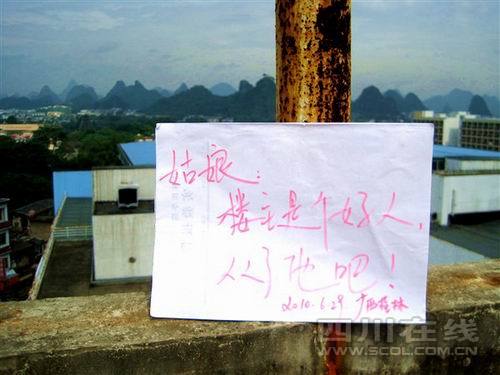 姑娘：
楼主是个好人，
从了他吧！
2010.6.29 广西桂林
四川在线
WWW.SCOL.COM.CN